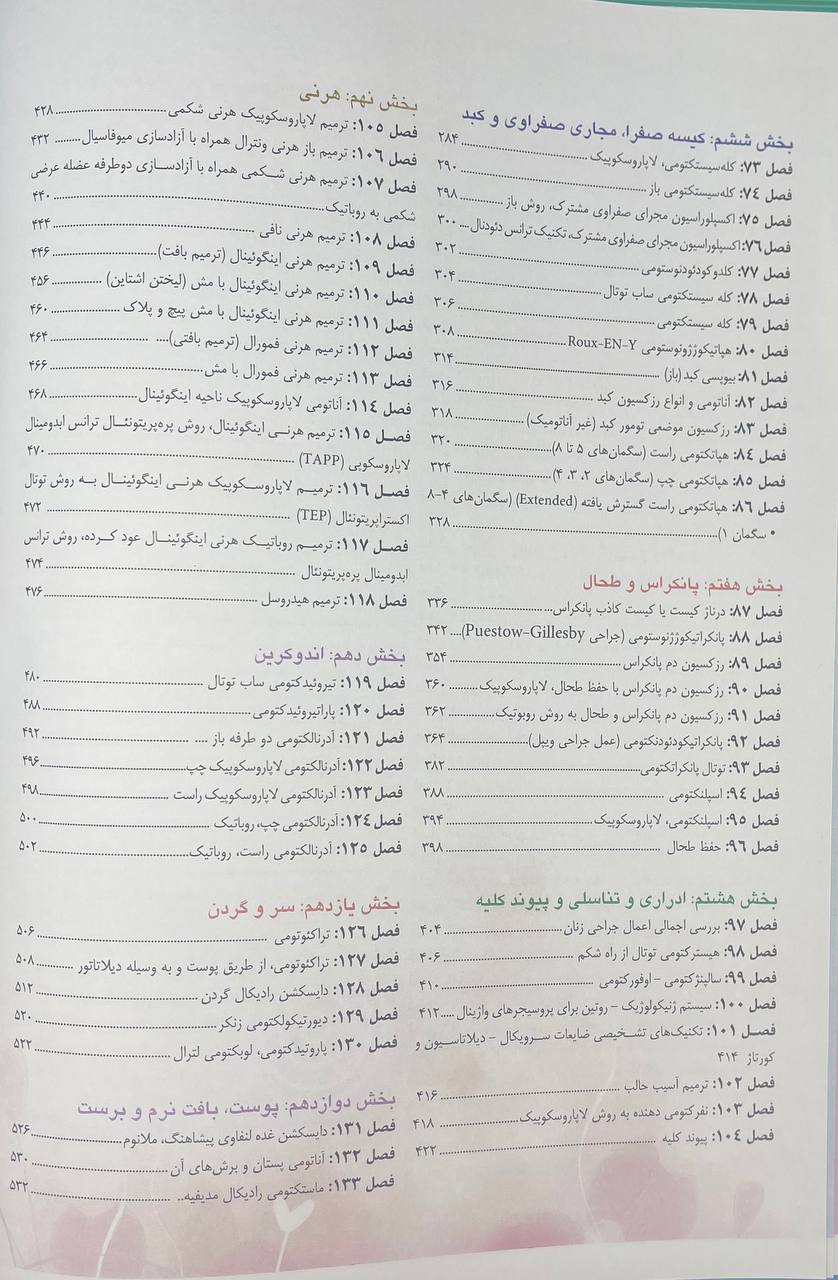 بخش ششم: کیسه صفرا، مجاری صفراوی و کبد
فصل ۷۳: کله‌سیستکتومی، لاپاروسکوپیک ........ ۲۸۴
فصل ۷۴: کله‌سیستکتومی باز ........ ۲۹۰
فصل ۷۵: اکسپلوراسیون مجرای صفراوی مشترک، روش باز ........ ۲۹۸
فصل ۷۶: اکسپلوراسیون مجرای صفراوی مشترک، تکنیک ترانس دئودنال .... ۳۰۰
فصل ۷۷: کلدوکودئودنوستومی ........ ۳۰۲
فصل ۷۸: کله سیستکتومی ساب توتال ........ ۳۰۴
فصل ۷۹: کله سیستکتومی ........ ۳۰۶
فصل ۸۰: هپاتیکوژژونوستومی Roux-EN-Y ........ ۳۰۸
فصل ۸۱: بیوپسی کبد (باز) ........ ۳۱۴
فصل ۸۲: آناتومی و انواع رزکسیون کبد ........ ۳۱۶
فصل ۸۳: رزکسیون موضعی تومور کبد (غیر آناتومیک) ........ ۳۱۸
فصل ۸۴: هپاتکتومی راست (سگمان‌های ۵ تا ۸) ........ ۳۲۰
فصل ۸۵: هپاتکتومی چپ (سگمان‌های ۲، ۳، ۴) ........ ۳۲۴
فصل ۸۶: هپاتکتومی راست گسترش یافته (Extended) (سگمان‌های ۴-۸
• سگمان ۱) ........ ۳۲۸
بخش هفتم: پانکراس و طحال
فصل ۸۷: درناژ کیست یا کیست کاذب پانکراس ........ ۳۳۶
فصل ۸۸: پانکراتیکوژژنوستومی (جراحی Puestow-Gillesby) .... ۳۴۲
فصل ۸۹: رزکسیون دم پانکراس ........ ۳۵۴
فصل ۹۰: رزکسیون دم پانکراس با حفظ طحال، لاپاروسکوپیک ........ ۳۶۰
فصل ۹۱: رزکسیون دم پانکراس و طحال به روش روبوتیک ........ ۳۶۲
فصل ۹۲: پانکراتیکودئودنکتومی (عمل جراحی ویپل) ........ ۳۶۴
فصل ۹۳: توتال پانکراتکتومی ........ ۳۸۲
فصل ۹۴: اسپلنکتومی ........ ۳۸۸
فصل ۹۵: اسپلنکتومی، لاپاروسکوپیک ........ ۳۹۴
فصل ۹۶: حفظ طحال ........ ۳۹۸
بخش هشتم: ادراری و تناسلی و پیوند کلیه
فصل ۹۷: بررسی اجمالی اعمال جراحی زنان ........ ۴۰۴
فصل ۹۸: هیسترکتومی توتال از راه شکم ........ ۴۰۶
فصل ۹۹: سالپنژکتومی - اوفورکتومی ........ ۴۱۰
فصل ۱۰۰: سیستم ژنیکولوژیک - روتین برای پروسیجرهای واژینال .... ۴۱۲
فصل ۱۰۱: تکنیک‌های تشخیصی ضایعات سرویکال - دیلاتاسیون و
کورتاژ ۴۱۴
فصل ۱۰۲: ترمیم آسیب حالب ........ ۴۱۶
فصل ۱۰۳: نفرکتومی دهنده به روش لاپاروسکوپیک ........ ۴۱۸
فصل ۱۰۴: پیوند کلیه ........ ۴۲۲
بخش نهم: هرنی
فصل ۱۰۵: ترمیم لاپاروسکوپیک هرنی شکمی ........ ۴۲۸
فصل ۱۰۶: ترمیم باز هرنی ونترال همراه با آزادسازی میوفاسیال ........ ۴۳۲
فصل ۱۰۷: ترمیم هرنی شکمی همراه با آزادسازی دوطرفه عضله عرضی
شکمی به روباتیک ........ ۴۴۰
فصل ۱۰۸: ترمیم هرنی نافی ........ ۴۴۴
فصل ۱۰۹: ترمیم هرنی اینگوئینال (ترمیم بافت) ........ ۴۴۶
فصل ۱۱۰: ترمیم هرنی اینگوئینال با مش (لیختن اشتاین) ........ ۴۵۶
فصل ۱۱۱: ترمیم هرنی اینگوئینال با مش پیچ و پلاک ........ ۴۶۰
فصل ۱۱۲: ترمیم هرنی فمورال (ترمیم بافتی) ........ ۴۶۴
فصل ۱۱۳: ترمیم هرنی فمورال با مش ........ ۴۶۶
فصل ۱۱۴: آناتومی لاپاروسکوپیک ناحیه اینگوئینال ........ ۴۶۸
فصل ۱۱۵: ترمیم هرنی اینگوئینال، روش پره‌پریتونئال ترانس ابدومینال
لاپاروسکوپی (TAPP) ........ ۴۷۰
فصل ۱۱۶: ترمیم لاپاروسکوپیک هرنی اینگوئینال به روش توتال
اکستراپریتونئال (TEP) ........ ۴۷۲
فصل ۱۱۷: ترمیم روباتیک هرنی اینگوئینال عود کرده، روش ترانس
ابدومینال پره‌پریتونئال ........ ۴۷۴
فصل ۱۱۸: ترمیم هیدروسل ........ ۴۷۶
بخش دهم: اندوکرین
فصل ۱۱۹: تیروئیدکتومی ساب توتال ........ ۴۸۰
فصل ۱۲۰: پاراتیروئیدکتومی ........ ۴۸۸
فصل ۱۲۱: آدرنالکتومی دو طرفه باز ........ ۴۹۲
فصل ۱۲۲: آدرنالکتومی لاپاروسکوپیک چپ ........ ۴۹۶
فصل ۱۲۳: آدرنالکتومی لاپاروسکوپیک راست ........ ۴۹۸
فصل ۱۲۴: آدرنالکتومی چپ، روباتیک ........ ۵۰۰
فصل ۱۲۵: آدرنالکتومی راست، روباتیک ........ ۵۰۲
بخش یازدهم: سر و گردن
فصل ۱۲۶: تراکئوتومی ........ ۵۰۶
فصل ۱۲۷: تراکئوتومی، از طریق پوست و به وسیله دیلاتاتور ........ ۵۰۸
فصل ۱۲۸: دایسکشن رادیکال گردن ........ ۵۱۲
فصل ۱۲۹: دیورتیکولکتومی زنکر ........ ۵۲۰
فصل ۱۳۰: پاروتیدکتومی، لوبکتومی لترال ........ ۵۲۲
بخش دوازدهم: پوست، بافت نرم و برست
فصل ۱۳۱: دایسکشن غده لنفاوی پیشاهنگ، ملانوم ........ ۵۲۶
فصل ۱۳۲: آناتومی پستان و برش‌های آن ........ ۵۳۰
فصل ۱۳۳: ماستکتومی رادیکال مدیفیه ........ ۵۳۲